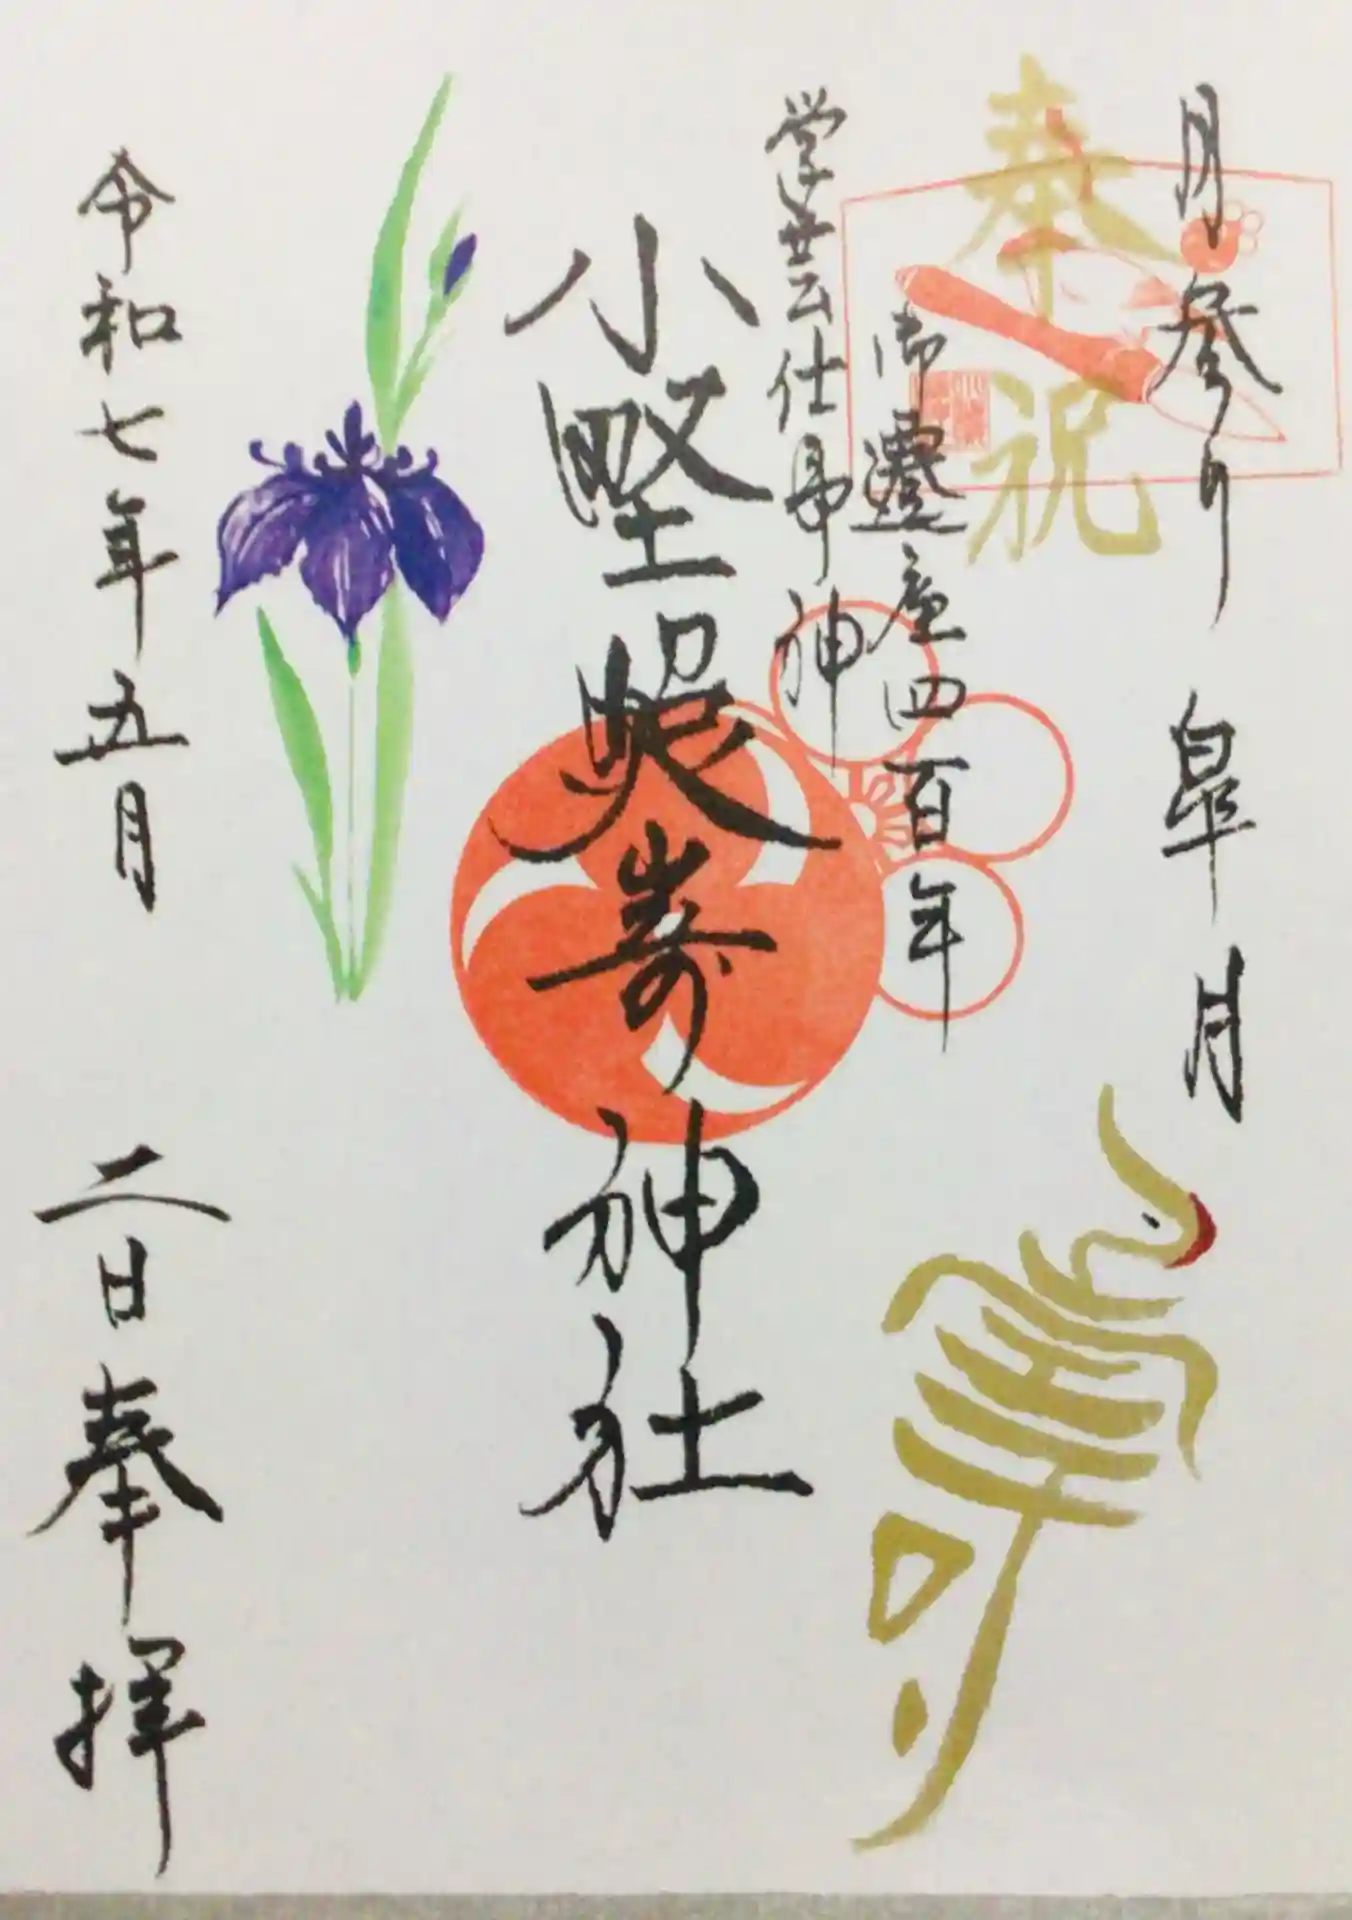 月参り　皐月
奉祝
御遷座四百年
学芸仕事神
小野照嵜神社
令和七年五月　二日奉拝